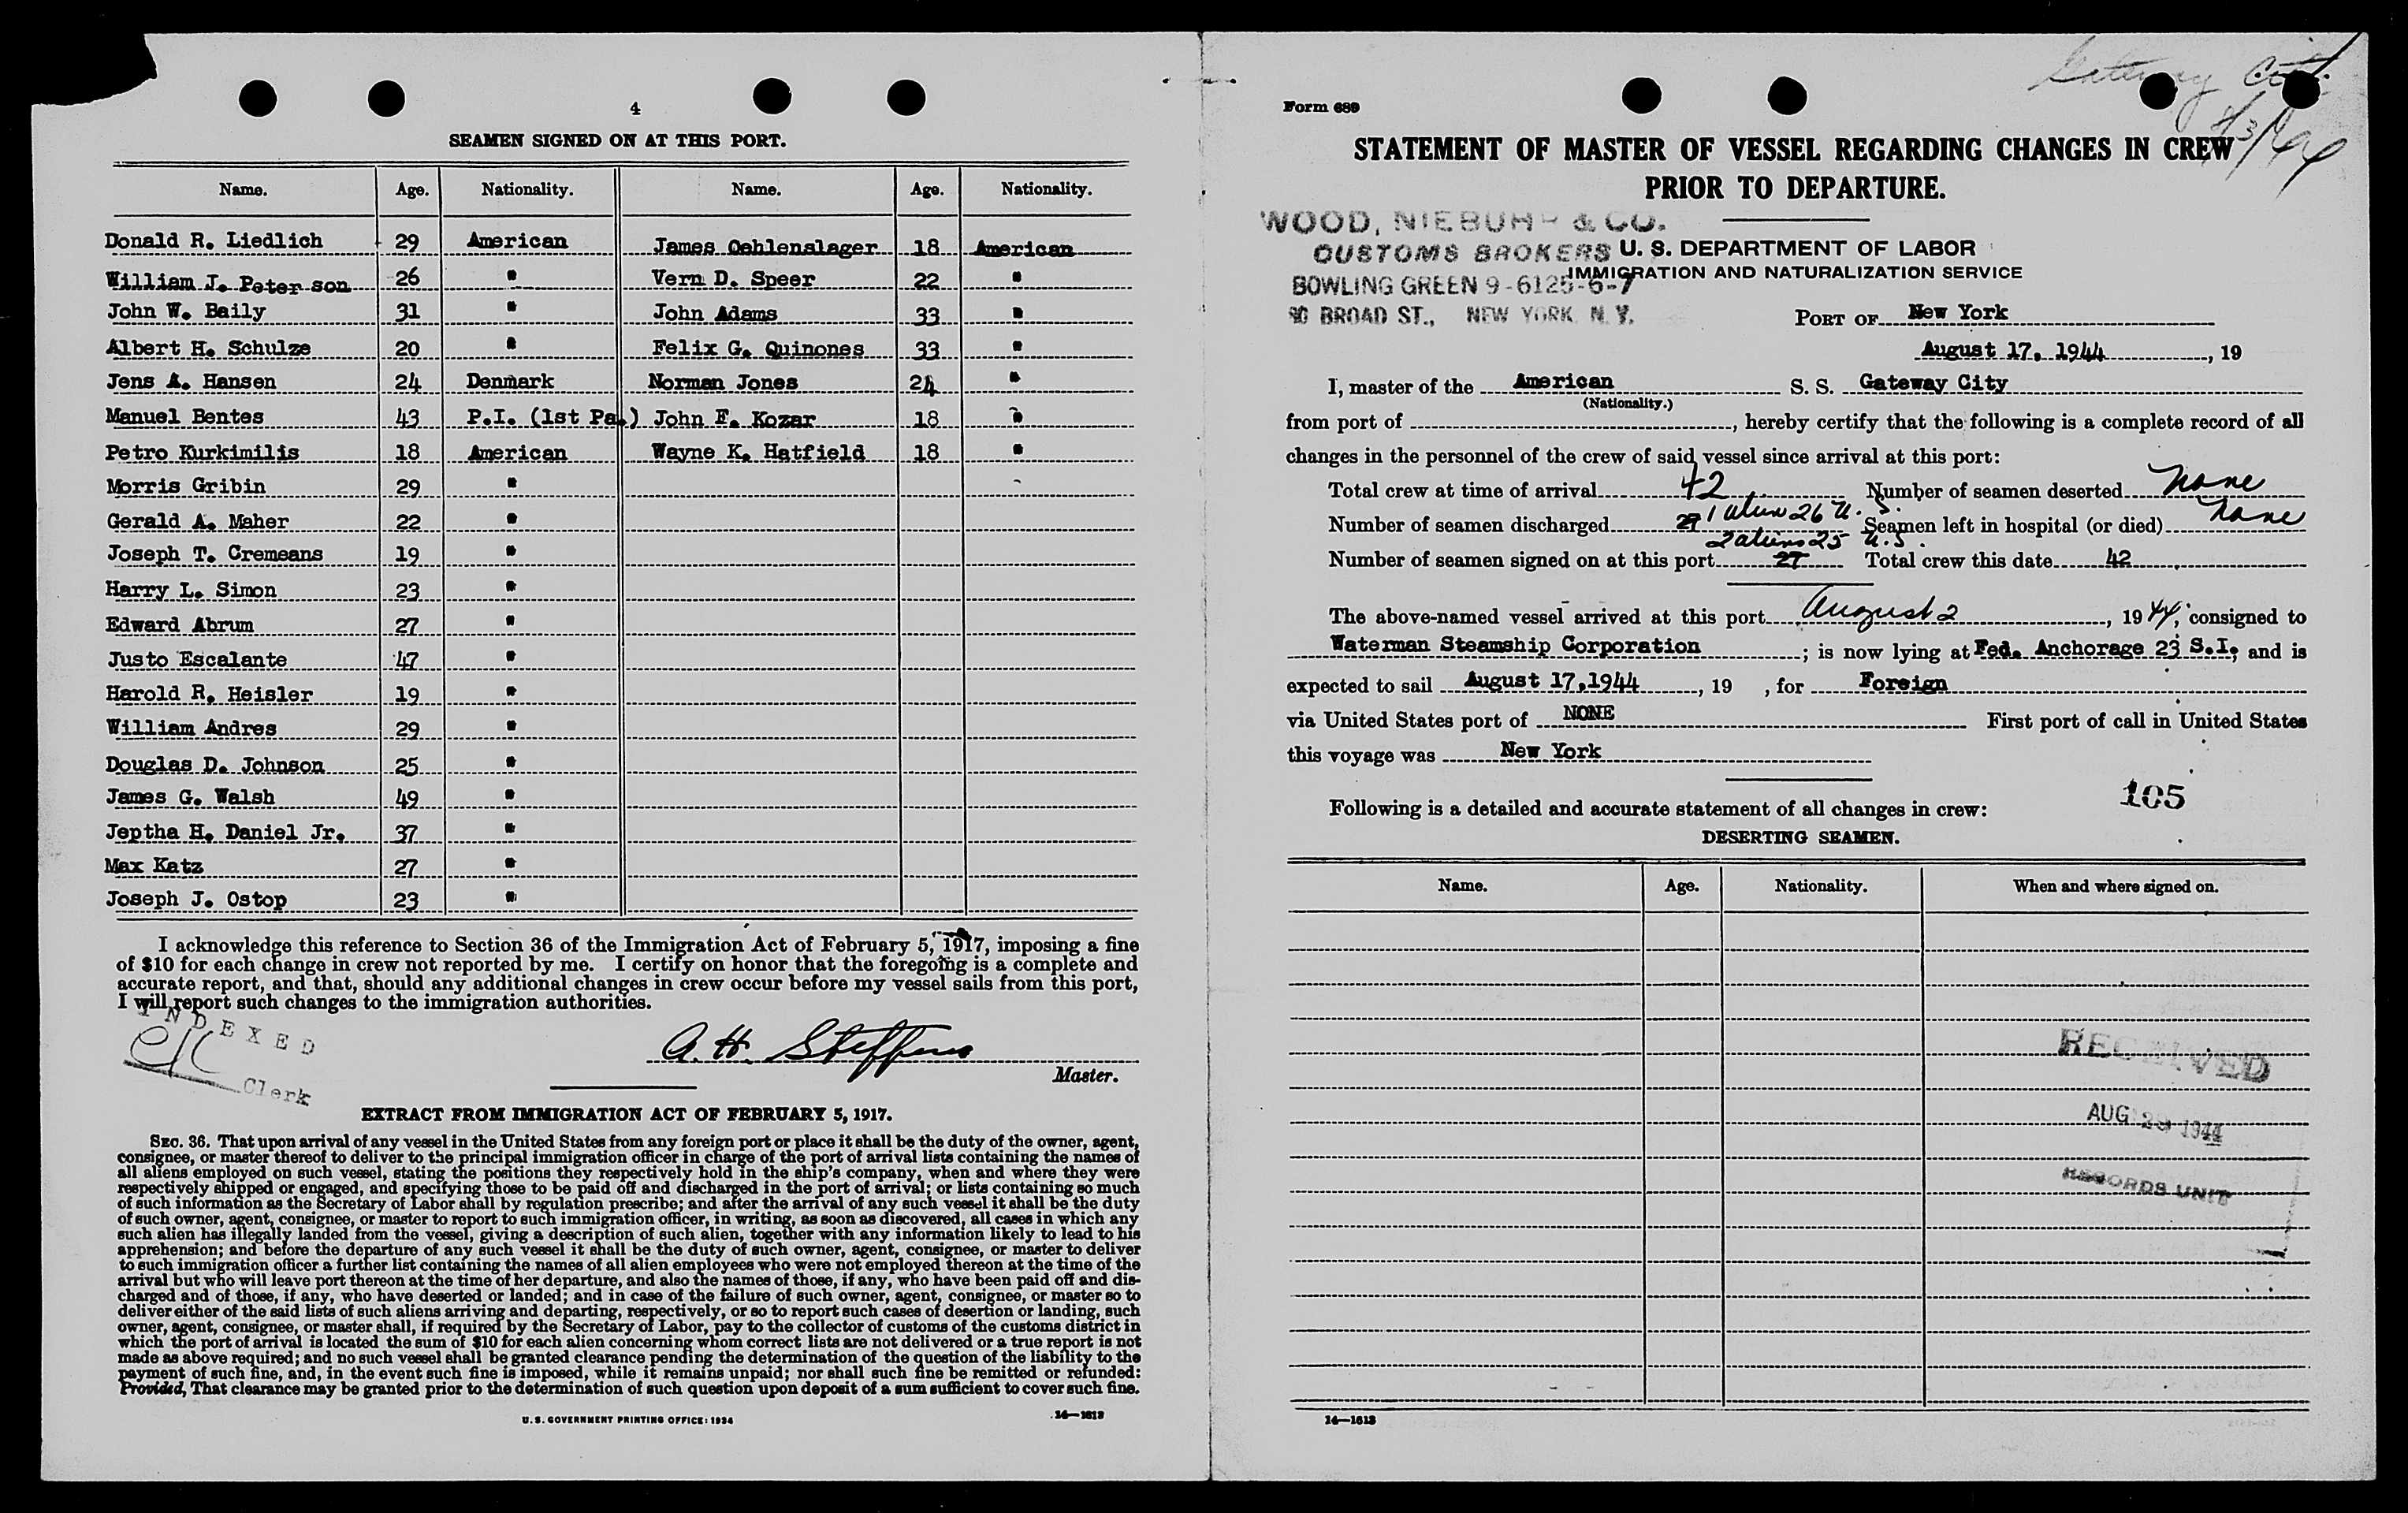 4
SEAMEN SIGNED ON AT THIS PORT.
Name. Age. Nationality. Name. Age. Nationality.
Donald R. Liedlich 29 American James Oehlenslager 18 American
William J. Peter son 26 " Vern D. Speer 22 "
John W. Baily 31 " John Adams 33 "
Albert H. Schulze 20 " Felix G. Quinones 33 "
Jens A. Hansen 24 Denmark Norman Jones 24 "
Manuel Bentes 43 P.I. (1st Pa.) John F. Kozar 18 "
Petro Kurkimilis 18 American Wayne K. Hatfield 18 "
Morris Gribin 29 "
Gerald A. Maher 22 "
Joseph T. Cremeans 19 "
Harry L. Simon 23 "
Edward Abrum 27 "
Justo Escalante 47 "
Harold R. Heisler 19 "
William Andres 29 "
Douglas D. Johnson 25 "
James G. Walsh 49 "
Jeptha H. Daniel Jr. 37 "
Max Katz 27 "
Joseph J. Ostop 23 "
I acknowledge this reference to Section 36 of the Immigration Act of February 5, 1917, imposing a fine
of $10 for each change in crew not reported by me. I certify on honor that the foregoing is a complete and
accurate report, and that, should any additional changes in crew occur before my vessel sails from this port,
I will report such changes to the immigration authorities.
INDEXED
Clerk
A. H. Steffens
Master.
EXTRACT FROM IMMIGRATION ACT OF FEBRUARY 5, 1917.
SEC. 36. That upon arrival of any vessel in the United States from any foreign port or place it shall be the duty of the owner, agent,
consignee, or master thereof to deliver to the principal immigration officer in charge of the port of arrival lists containing the names of
all aliens employed on such vessel, stating the positions they respectively hold in the ship's company, when and where they were
respectively shipped or engaged, and specifying those to be paid off and discharged in the port of arrival; or lists containing so much
of such information as the Secretary of Labor shall by regulation prescribe; and after the arrival of any such vessel it shall be the duty
of such owner, agent, consignee, or master to report to such immigration officer, in writing, as soon as discovered, all cases in which any
such alien has illegally landed from the vessel, giving a description of such alien, together with any information likely to lead to his
apprehension; and before the departure of any such vessel it shall be the duty of such owner, agent, consignee, or master to deliver
to such immigration officer a further list containing the names of all alien employees who were not employed thereon at the time of the
arrival but who will leave port thereon at the time of her departure, and also the names of those, if any, who have been paid off and dis-
charged and of those, if any, who have deserted or landed; and in case of the failure of such owner, agent, consignee, or master so to
deliver either of the said lists of such aliens arriving and departing, respectively, or so to report such cases of desertion or landing, such
owner, agent, consignee, or master shall, if required by the Secretary of Labor, pay to the collector of customs of the customs district in
which the port of arrival is located the sum of $10 for each alien concerning whom correct lists are not delivered or a true report is not
made as above required; and no such vessel shall be granted clearance pending the determination of the question of the liability to the
payment of such fine, and, in the event such fine is imposed, while it remains unpaid; nor shall such fine be remitted or refunded:
Provided, That clearance may be granted prior to the determination of such question upon deposit of a sum sufficient to cover such fine.
U. S. GOVERNMENT PRINTING OFFICE: 1934 14—1613
Gateway City
Form 689
STATEMENT OF MASTER OF VESSEL REGARDING CHANGES IN CREW
PRIOR TO DEPARTURE.
WOOD, NIEBUHR & CO.
CUSTOMS BROKERS
BOWLING GREEN 9-6125-6-7
90 BROAD ST., NEW YORK N. Y.
U. S. DEPARTMENT OF LABOR
IMMIGRATION AND NATURALIZATION SERVICE
PORT OF New York
August 17, 1944, 19
I, master of the American S. S. Gateway City
(Nationality.)
from port of , hereby certify that the following is a complete record of all
changes in the personnel of the crew of said vessel since arrival at this port:
Total crew at time of arrival 42 Number of seamen deserted None
Number of seamen discharged 27 1 alien 26 U.S. Seamen left in hospital (or died) None
2 aliens 25 U.S.
Number of seamen signed on at this port 27 Total crew this date 42
The above-named vessel arrived at this port August 2, 1944, consigned to
Waterman Steamship Corporation; is now lying at Fed. Anchorage 23 S.I. and is
expected to sail August 17,1944, 19 , for Foreign
via United States port of NONE First port of call in United States
this voyage was New York
105
Following is a detailed and accurate statement of all changes in crew:
DESERTING SEAMEN.
Name. Age. Nationality. When and where signed on.
RECEIVED
AUG 29 1944
RECORDS UNIT
14—1613